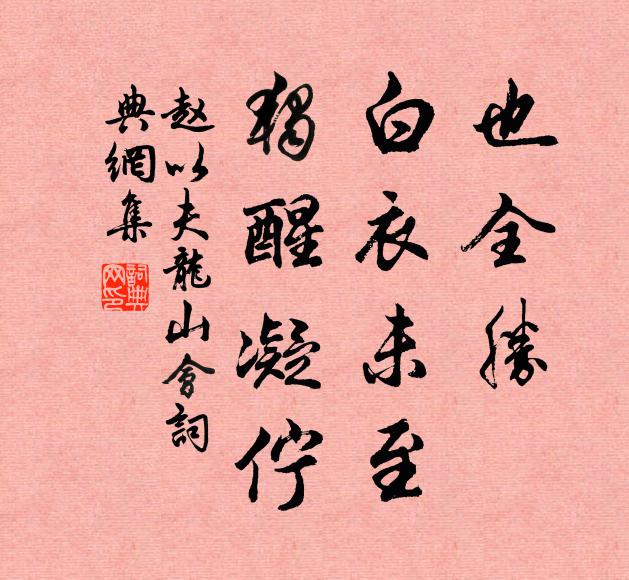 也全勝
白衣未至
獨醒凝佇
赵以夫龍山會詞
典網集
詞典
网印